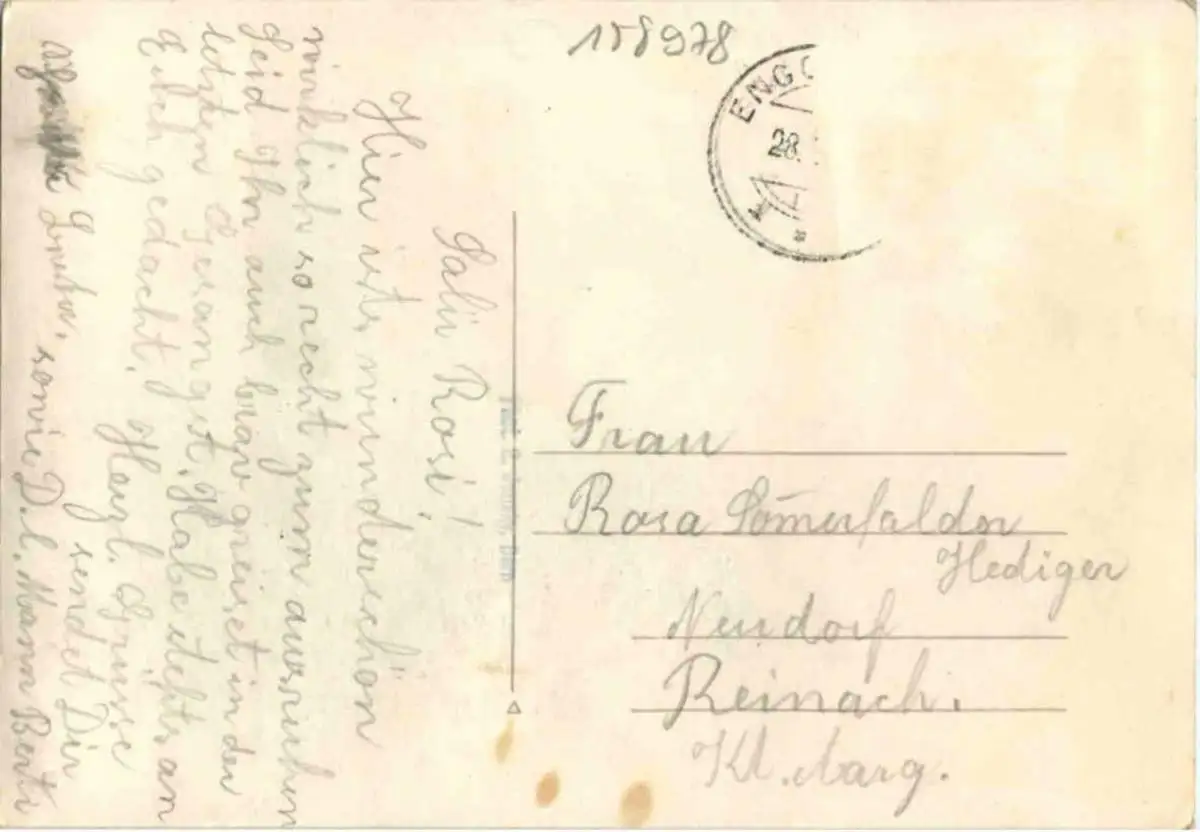 158978
ENG
28.
Salü Rosi!
Hier ists wunderschön
wirklich so recht zum ausruhen
Seid Ihr auch brav greiset in der
letzten Gesangst. Habe stehts an
Euch gedacht. Herzl. Grüsse
sendet Dir
sowie D. l. Mann Berti
Frau
Rosa Som̄erhalder
Hediger
Neudorf
Reinach.
Kt. Aarg.